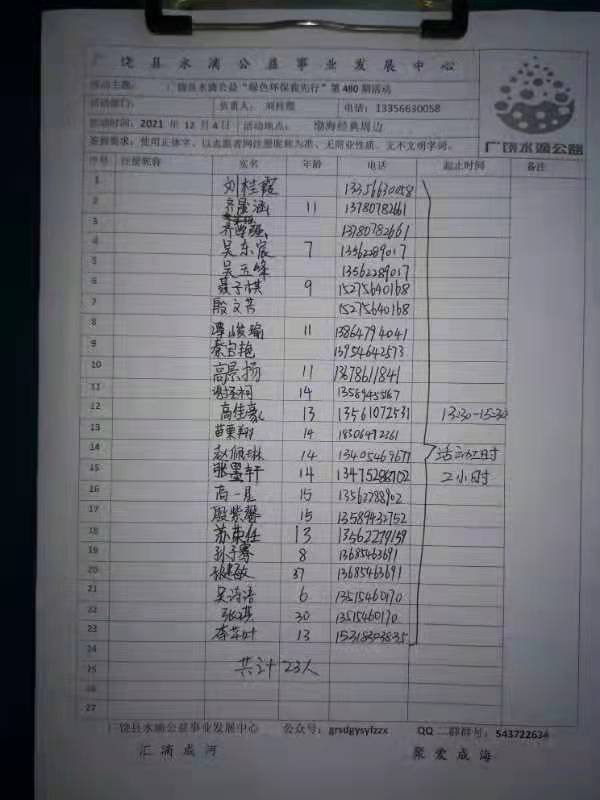 广饶县水滴公益事业发展中心
活动主题： 广饶县水滴公益“绿色环保我先行”第 480 期活动
活动部门： 负责人： 刘桂霞 电话：13356630058
活动时间：2021 年 12 月 4 日 活动地点： 渤海经典周边
签到要求：使用正体字、以志愿者网注册昵称为准、无商业性质、无不文明字词。
广饶水滴公益
序号 注册昵称 实名 年龄 电话 起止时间 备注
1 刘桂霞 13356630058
2 齐 涵 11 13780782661
3 齐 强 13780782661
4 吴东宸 7 13562289017
5 吴玉峰 13562289017
6 聂子棋 9 15275640168
7 殷文芳 15275640168
8 谭峻瑜 11 13864794041
9 秦宝艳 13954642573
10 高景扬 11
11 14 13589455167
12 高佳豪 13 13561072531 13:30-15:30
13 苗栗翔 14 18306492261
14 赵佩琳 14 13405469677 活动工时
15 张墨轩 14 13475288702 2小时
16 高一星 15 13562788902
17 殷紫馨 15 13589432752
18 苏荣任 13 13562279159
19 孙子骞 8 13685463691
20 张建敏 37 13685463691
21 吴诗语 6 13515460170
22 张琪 30 13515460170
23 李芊叶 13 15318303835
24
25 共计23人
26
27
广饶县水滴公益事业发展中心 公众号：grsdgysyfzzx QQ 二群群号：543722634
汇滴成河 聚爱成海